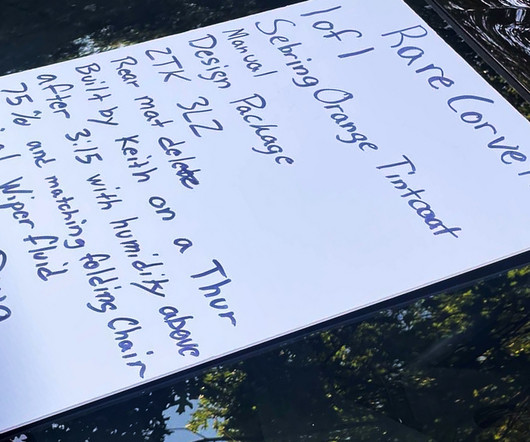 Rare Corve
1 of 1
Sebring Orange Tintcoat
Manual
Design Package
ZTK 3LZ
Rear mat delete
Built by Keith on a Thur
after 3:15 with humidity above
75% and matching folding Chair
Wiper fluid